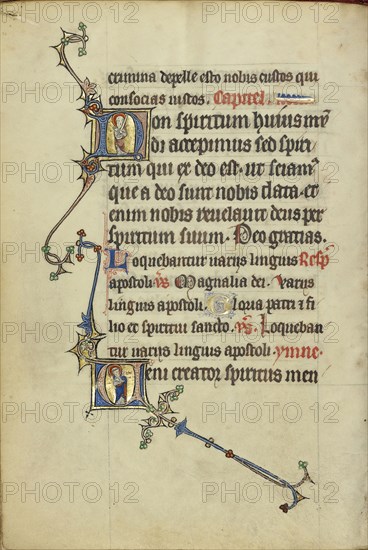 crimina depelle esto nobis custos qui
consocias iustos. Capitel.
Non spiritum huius mu̅
di accepimus sed spiri
tum qui ex deo est. ut sciam᷒
que a deo sunt nobis data. et
enim nobis reuelauit deus per
spiritum suum. Deo gratias.
Loquebantur uariis linguis Resp̅
apostoli. V̅s. Magnalia dei. Variis
linguis apostoli. Gloria patri et fi
lio et spiritui sancto. V̅s. Loqueban
tur uariis linguis apostoli. ymne.
Ueni creator spiritus men
PHOTO 12